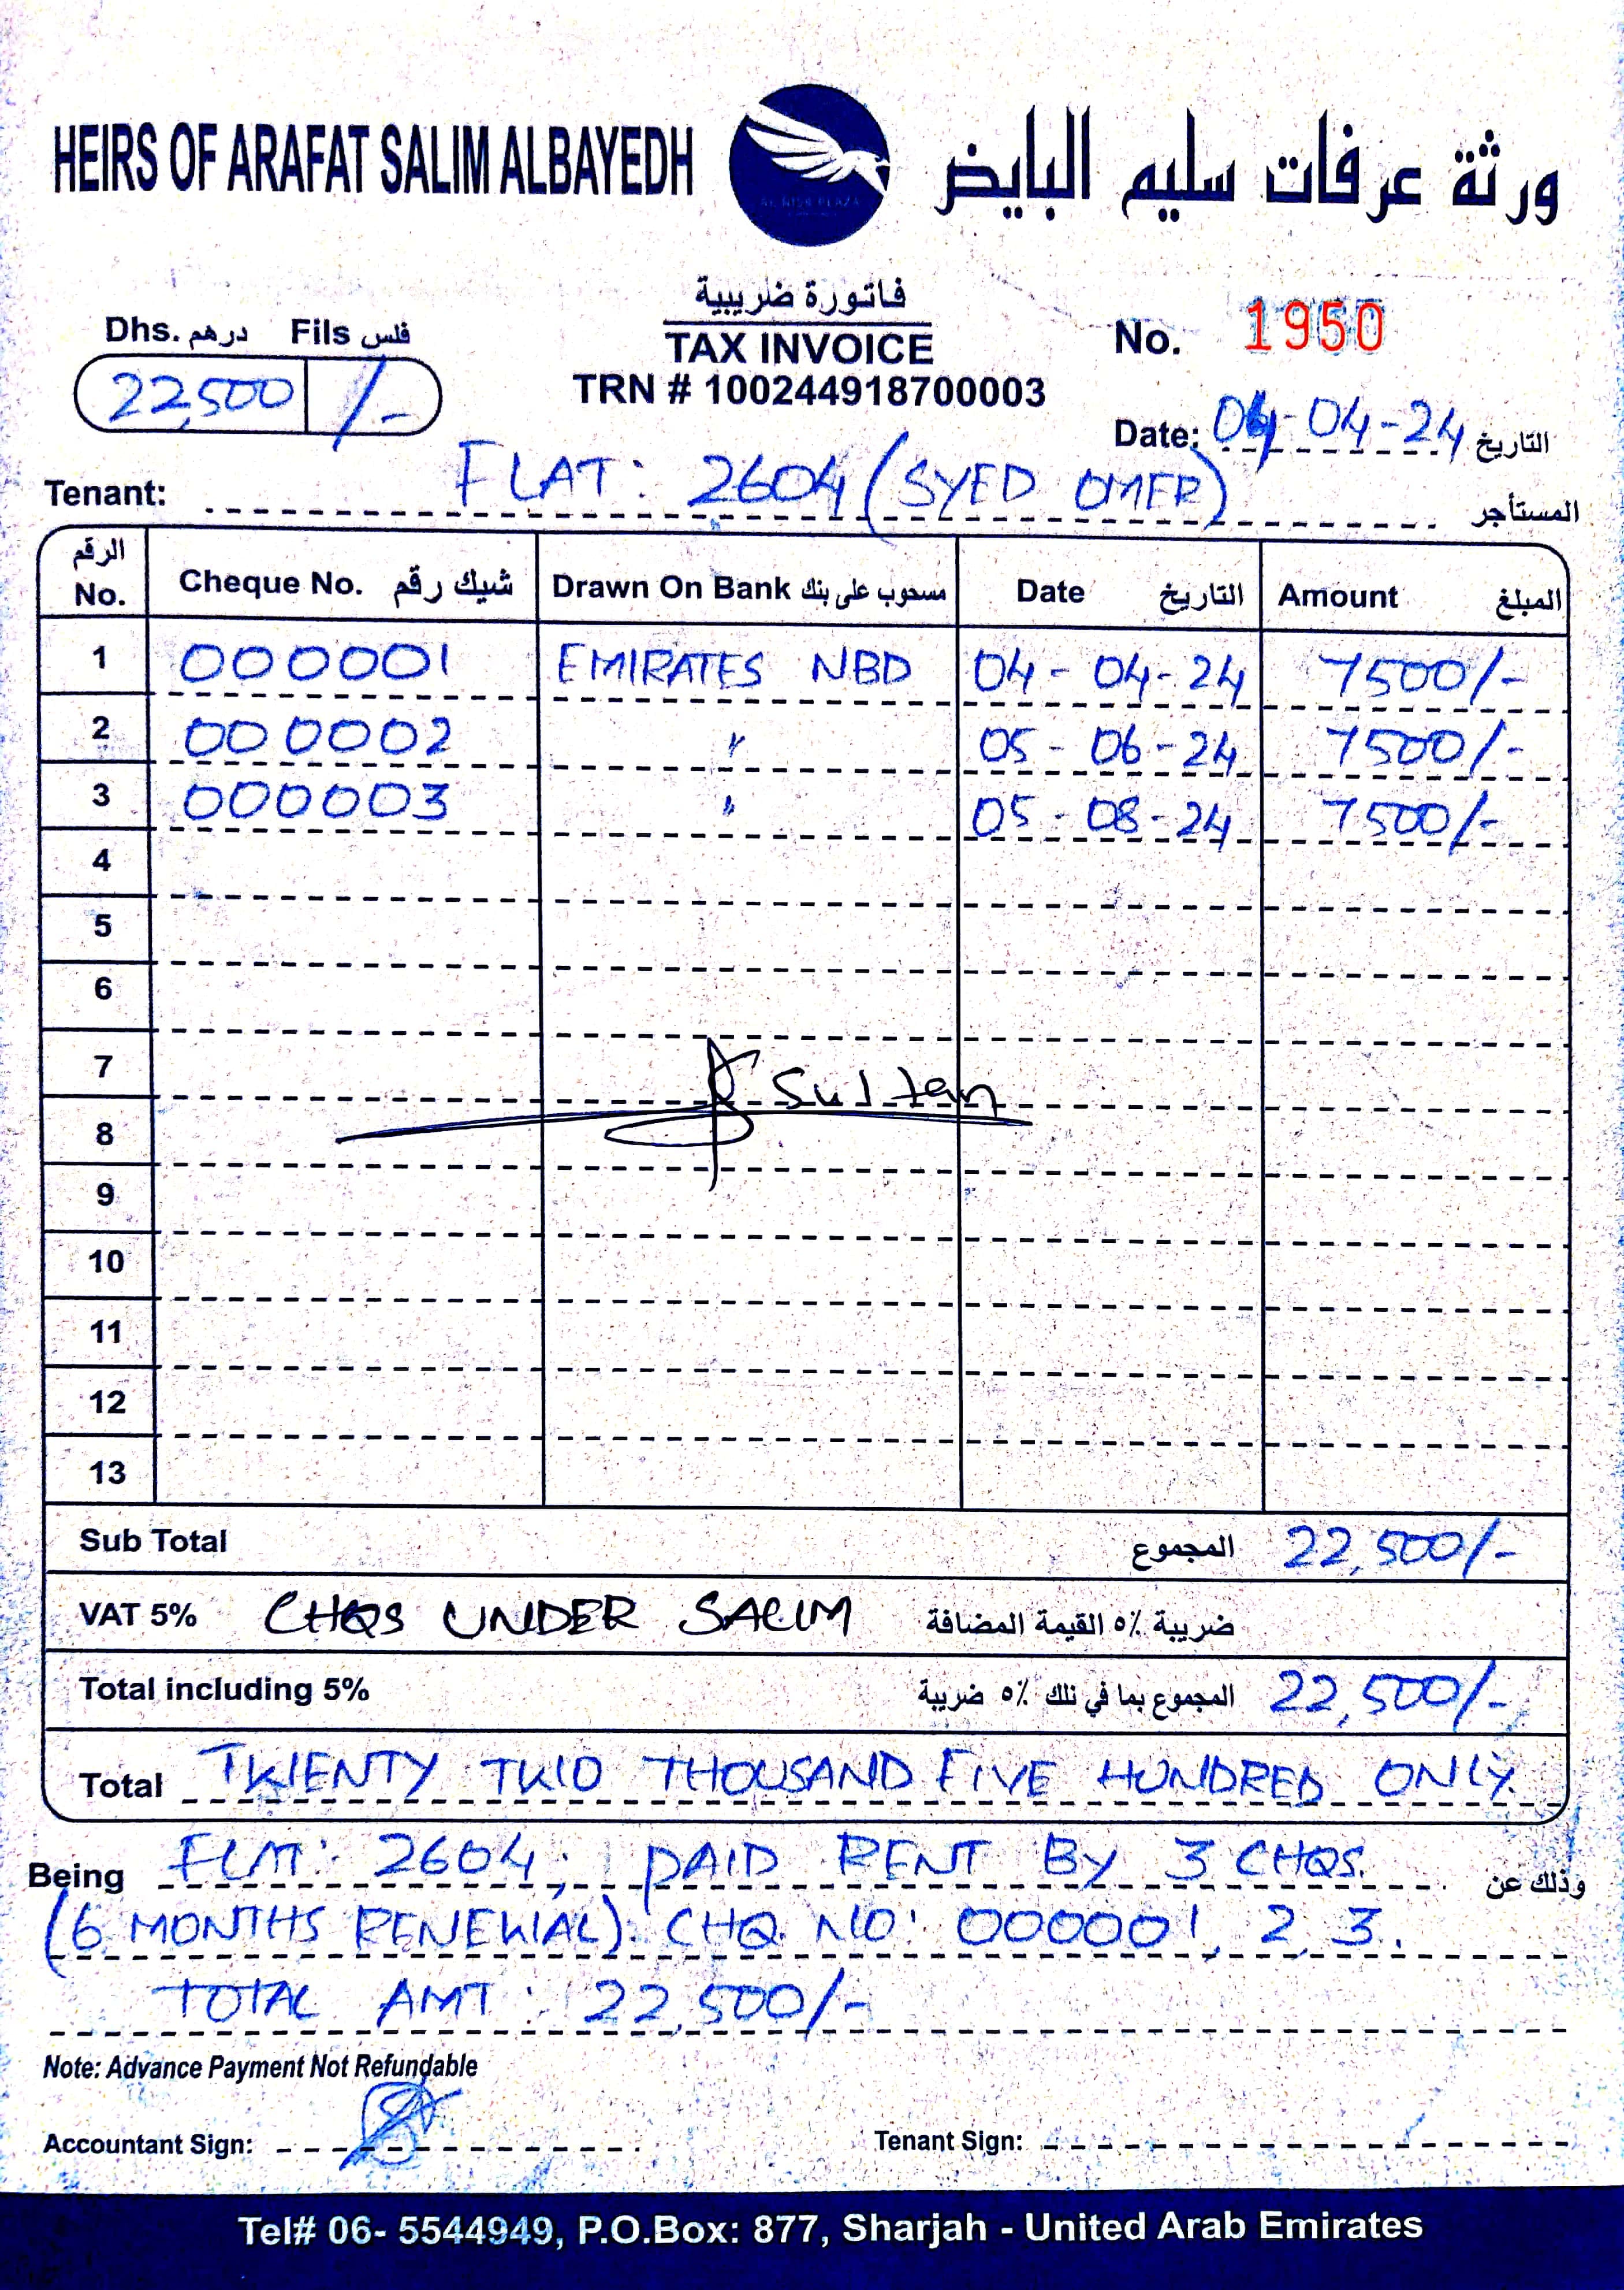 HEIRS OF ARAFAT SALIM ALBAYEDH ورثة عرفات سليم البايض
AL NISR PLAZA
فاتورة ضريبية
Dhs. درهم Fils فلس TAX INVOICE No. 1950
22,500 /- TRN # 100244918700003
Date: 04-04-24 التاريخ
Tenant: FLAT: 2604 (SYED OMER) المستأجر
الرقم No. Cheque No. شيك رقم Drawn On Bank مسحوب على بنك Date التاريخ Amount المبلغ
1 000001 EMIRATES NBD 04-04-24 7500/-
2 000002 " 05-06-24 7500/-
3 000003 " 05-08-24 7500/-
4
5
6
7 Sultan
8
9
10
11
12
13
Sub Total المجموع 22,500/-
VAT 5% CHQS UNDER SALIM ضريبة ٥٪ القيمة المضافة
Total including 5% المجموع بما في ذلك ٥٪ ضريبة 22,500/-
Total TWENTY TWO THOUSAND FIVE HUNDRED ONLY.
Being FLAT: 2604; PAID RENT BY 3 CHQS. وذلك عن
(6 MONTHS RENEWAL). CHQ NO: 000001, 2, 3.
TOTAL AMT: 22,500/-
Note: Advance Payment Not Refundable
Accountant Sign: Tenant Sign:
Tel# 06- 5544949, P.O.Box: 877, Sharjah - United Arab Emirates